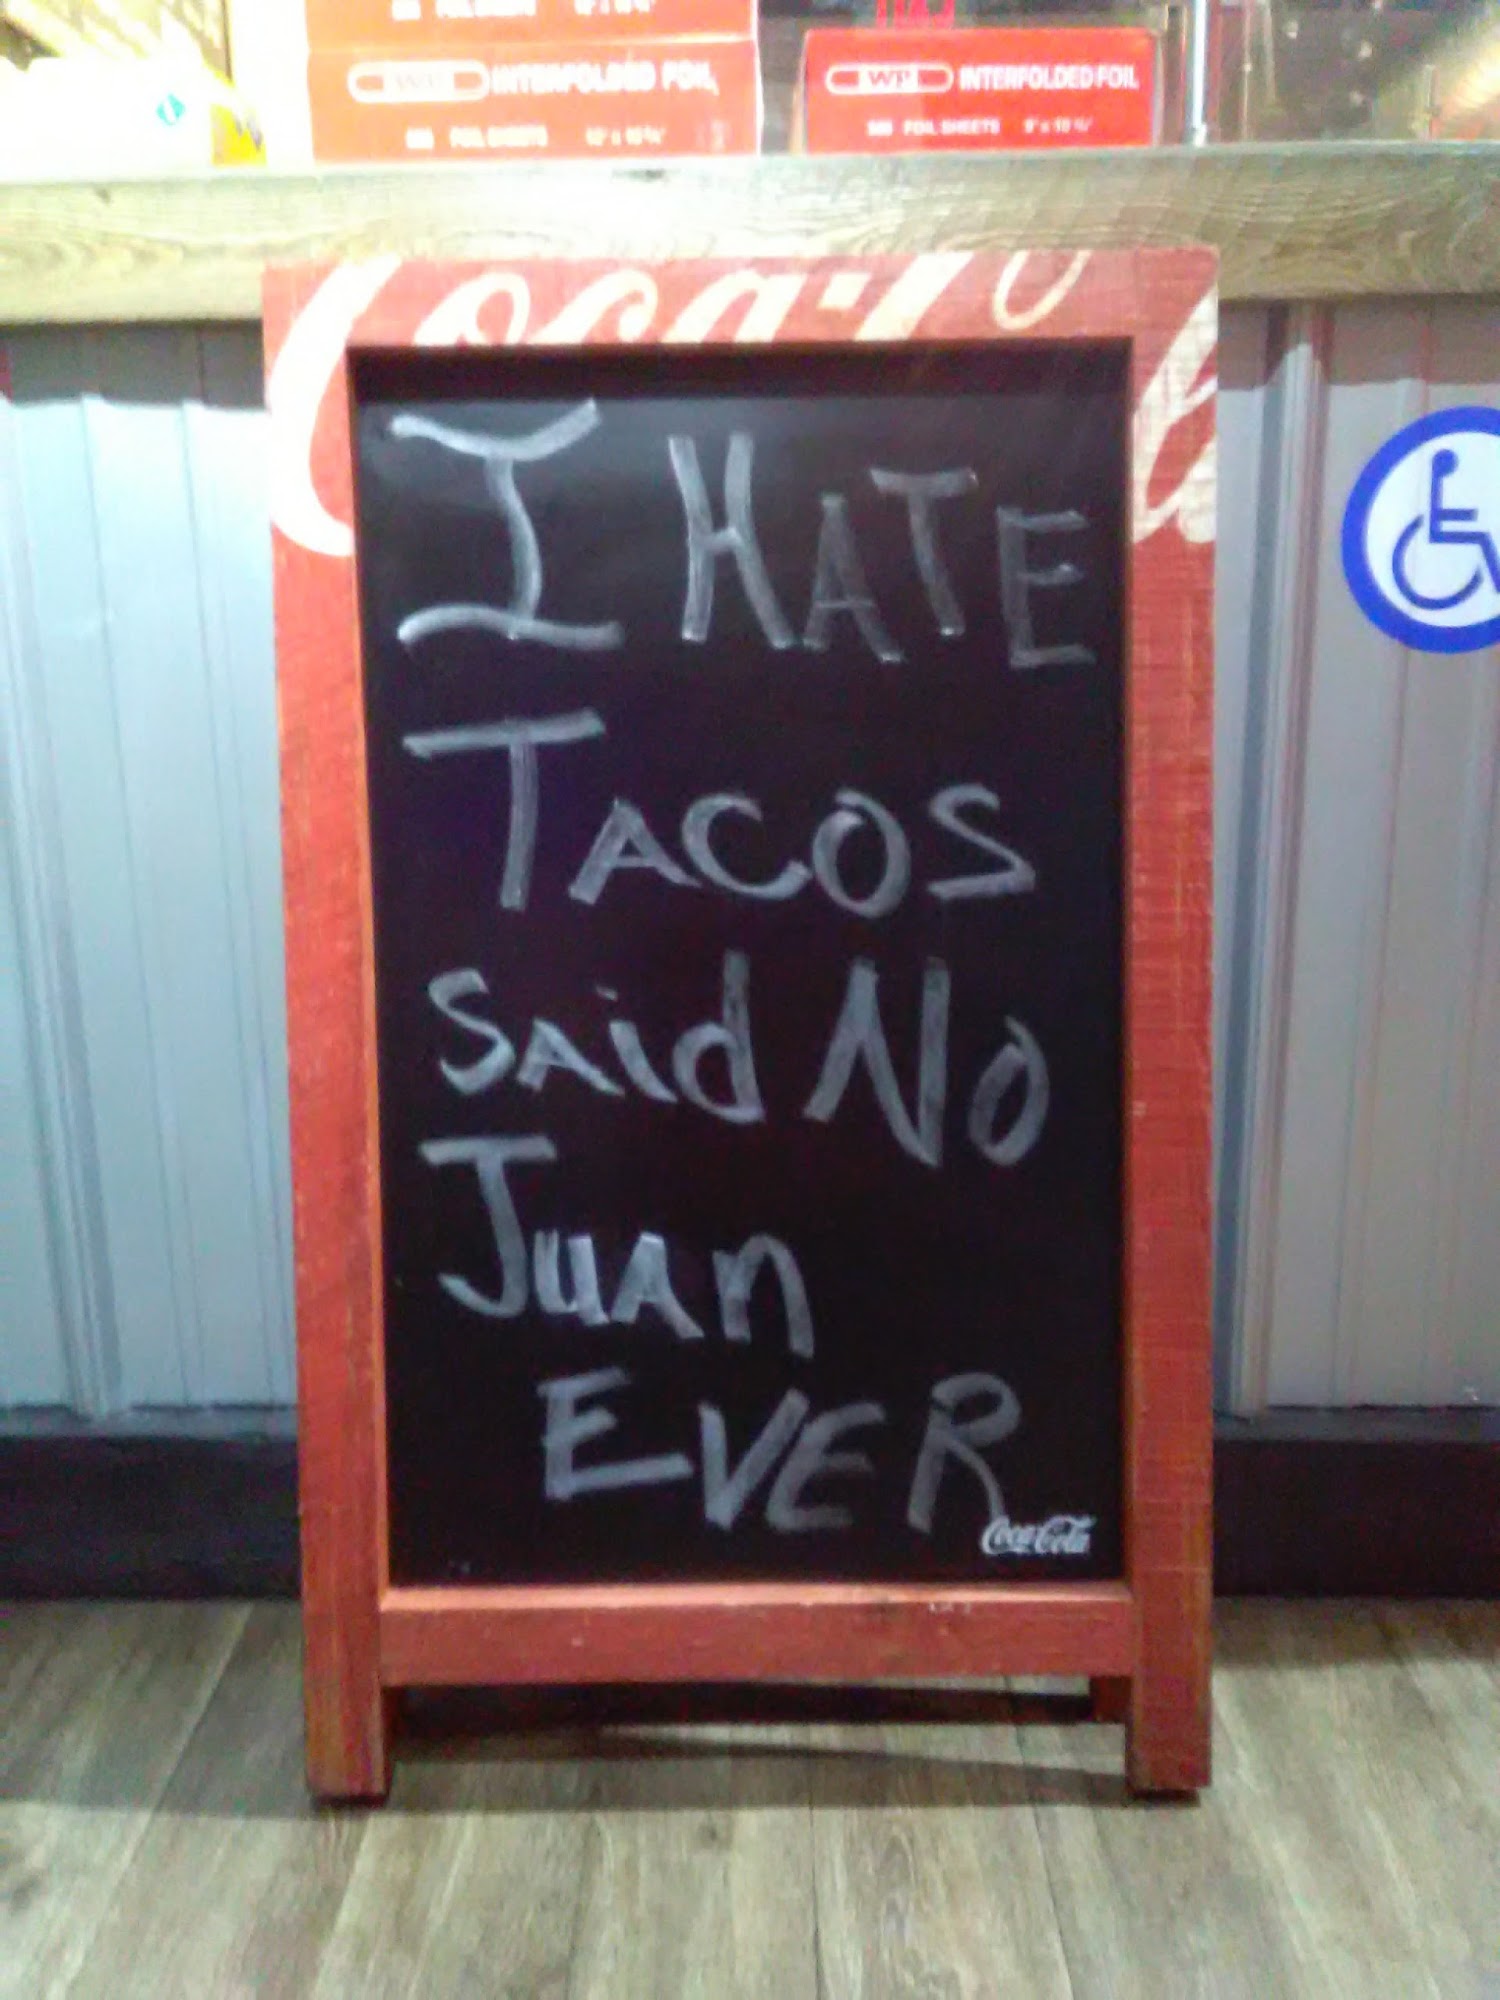 INTERFOLDED FOIL
FOIL SHEETS
WP INTERFOLDED FOIL
FOIL SHEETS
Coca-Co
I HATE
TACOS
SAid No
JuAn
EVER
Coca-Cola